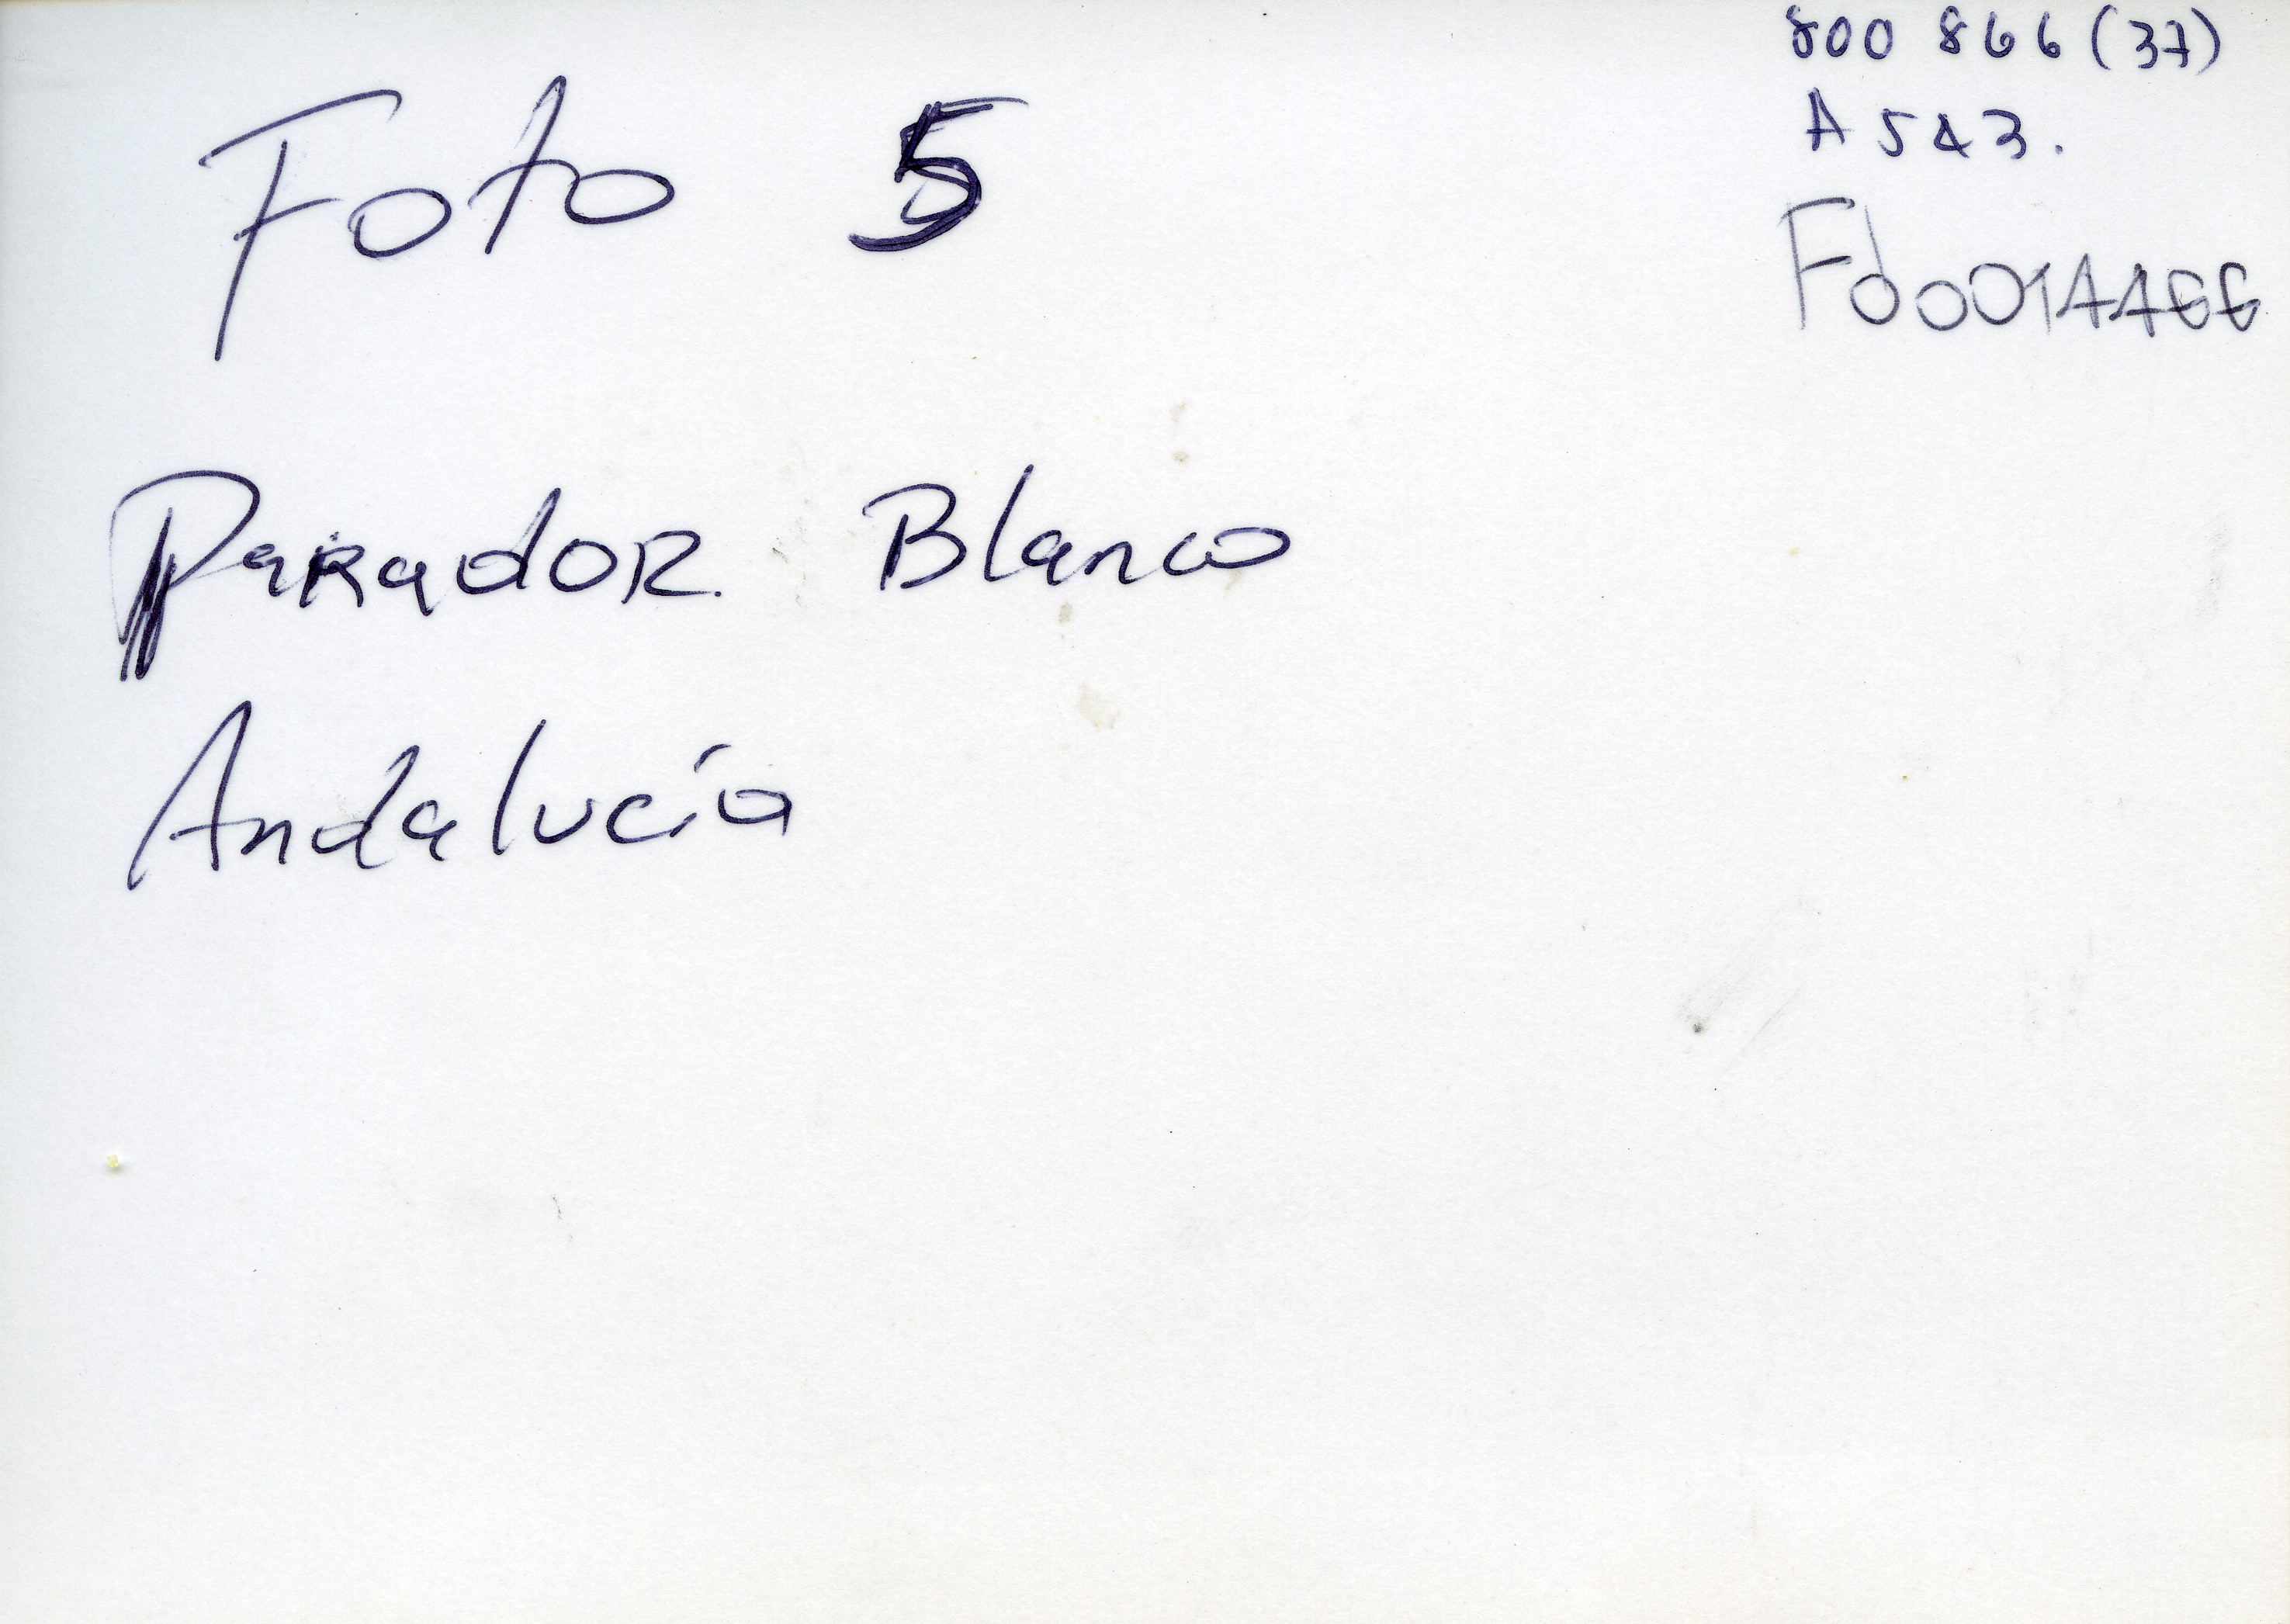 800 866 (37)
A 543.
Foto 5
Parador Blanco
Andalucía